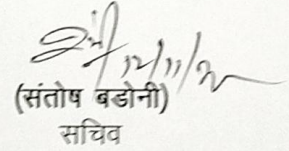 12/11/20
(संतोष बडोनी)
सचिव